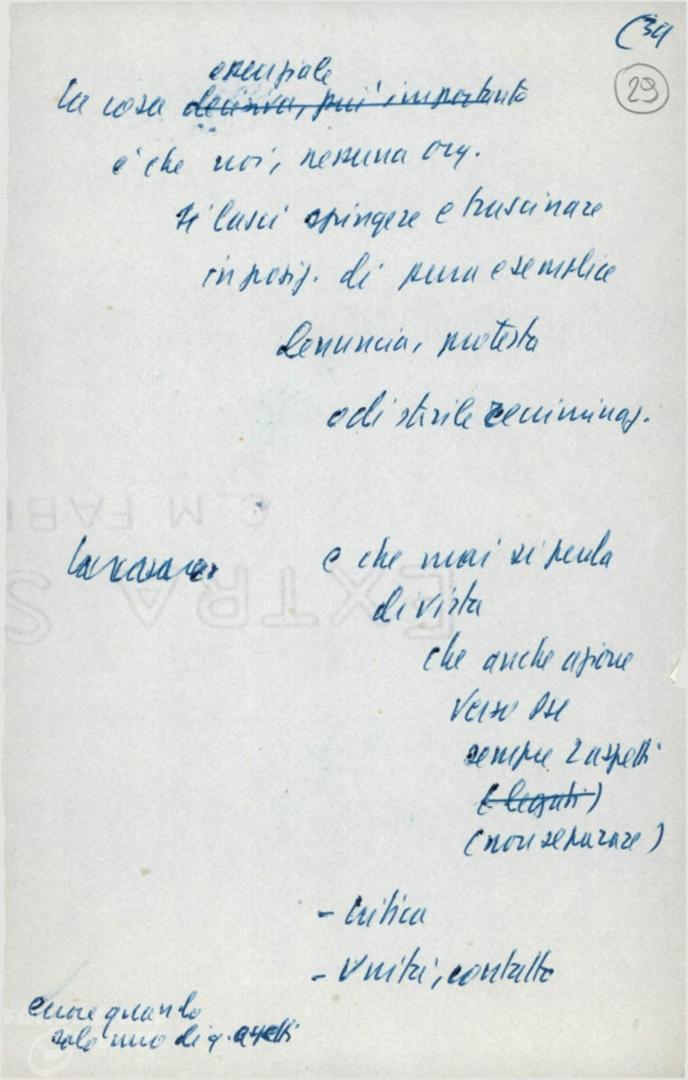 (39
29
essenziale
La cosa decisiva, piu' importante
è che noi, nessuna org.
si lasci spingere e trascinare
in posiz. di pura e semplice
denuncia, protesta
o di sterile recriminaz.
C. M. FABR
EXTRA S
e che mai si perda
di vista
che anche azione
verso PSI
sempre 2 aspetti
(legati)
(non separare)
- Critica
- Unità, contatto
errore quando
solo uno di q. aspetti